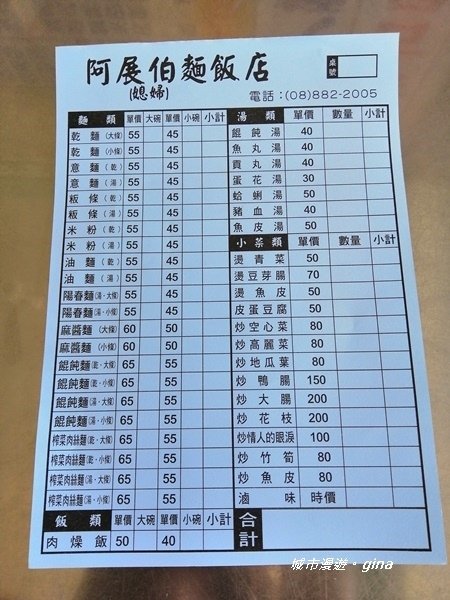 阿展伯麵飯店
(媳婦)
桌號
電話：(08)882-2005
麵類 單價 大碗 單價 小碗 小計
乾麵(大條) 55 45
乾麵(小條) 55 45
意麵(乾) 55 45
意麵(湯) 55 45
粄條(乾) 55 45
粄條(湯) 55 45
米粉(乾) 55 45
米粉(湯) 55 45
油麵(乾) 55 45
油麵(湯) 55 45
陽春麵(湯、大條) 55 45
陽春麵(湯、小條) 55 45
麻醬麵(大條) 60 50
麻醬麵(小條) 60 50
餛飩麵(乾、大條) 65 55
餛飩麵(乾、小條) 65 55
餛飩麵(湯、大條) 65 55
餛飩麵(湯、小條) 65 55
榨菜肉絲麵(乾、大條) 65 55
榨菜肉絲麵(乾、小條) 65 55
榨菜肉絲麵(湯、大條) 65 55
榨菜肉絲麵(湯、小條) 65 55
飯類 單價 大碗 單價 小碗 小計
肉燥飯 50 40
湯類 單價 數量 小計
餛飩湯 40
魚丸湯 40
貢丸湯 40
蛋花湯 30
蛤蜊湯 50
豬血湯 40
魚皮湯 50
小菜類 單價 數量 小計
燙青菜 50
燙豆芽腸 70
燙魚皮 50
皮蛋豆腐 50
炒空心菜 80
炒高麗菜 80
炒地瓜葉 80
炒鴨腸 150
炒大腸 200
炒花枝 200
炒情人的眼淚 100
炒竹筍 80
炒魚皮 80
滷味 時價
合計
城市漫遊。gina